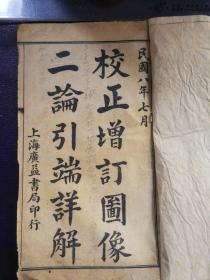 民國八年七月
校正增訂圖像
二論引端詳解
上海廣益書局印行